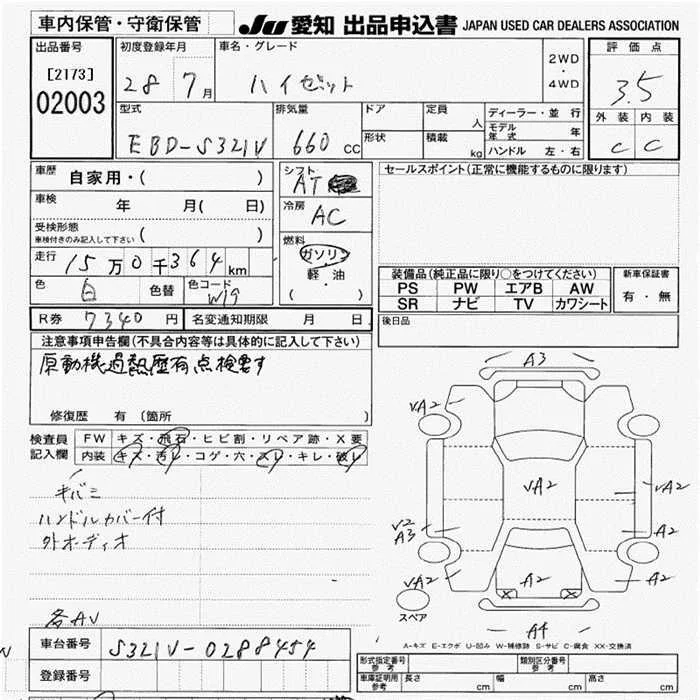 車内保管・守衛保管
JU 愛知 出品申込書 JAPAN USED CAR DEALERS ASSOCIATION
出品番号
[2173]
02003
初度登録年月
28 7月
車名・グレード
ハイゼット
2WD
・
4WD
評価点
3.5
外装 内装
C C
型式
EBD-S321V
排気量
660 cc
ドア
形状
定員 人
積載 kg
ディーラー・並行
モデル年式 年
ハンドル 左・右
車歴
自家用・( )
車検
年 月( 日)
受検形態
車検付きのみ記入して下さい ( )
走行
15万0千364km
色
白 色替
色コード
W19
シフト
AT
冷房
AC
燃料
ガソリン
軽・油
( )
セールスポイント(正常に機能するものに限ります)
装備品(純正品に限り○をつけてください)
PS PW エアB AW
SR ナビ TV カワシート
新車保証書
有・無
R券 7340円
名変通知期限 月 日
後日品
注意事項申告欄(不具合内容等は具体的に記入して下さい)
原動機過熱歴有点検要す
修復歴 有(箇所 )
検査員記入欄
FW キズ・飛石・ヒビ割・リペア跡・X要
内装 キズ・汚レ・コゲ・穴・スレ・キレ・破レ
キバミ
ハンドルカバー付
外オーディオ
各AV
A3
VA2
VA2
VA2
V2
A3
A2
VA2
A2
VA2
A4
スペア
A-キズ E-エクボ U-凹み W-補修跡 S-サビ C-腐食 XX-交換済
車台番号
S321V-0288454
登録番号
型式指定番号
参考
類別区分番号
参考
車庫証明用
参考
長さ cm
幅 cm
高さ cm